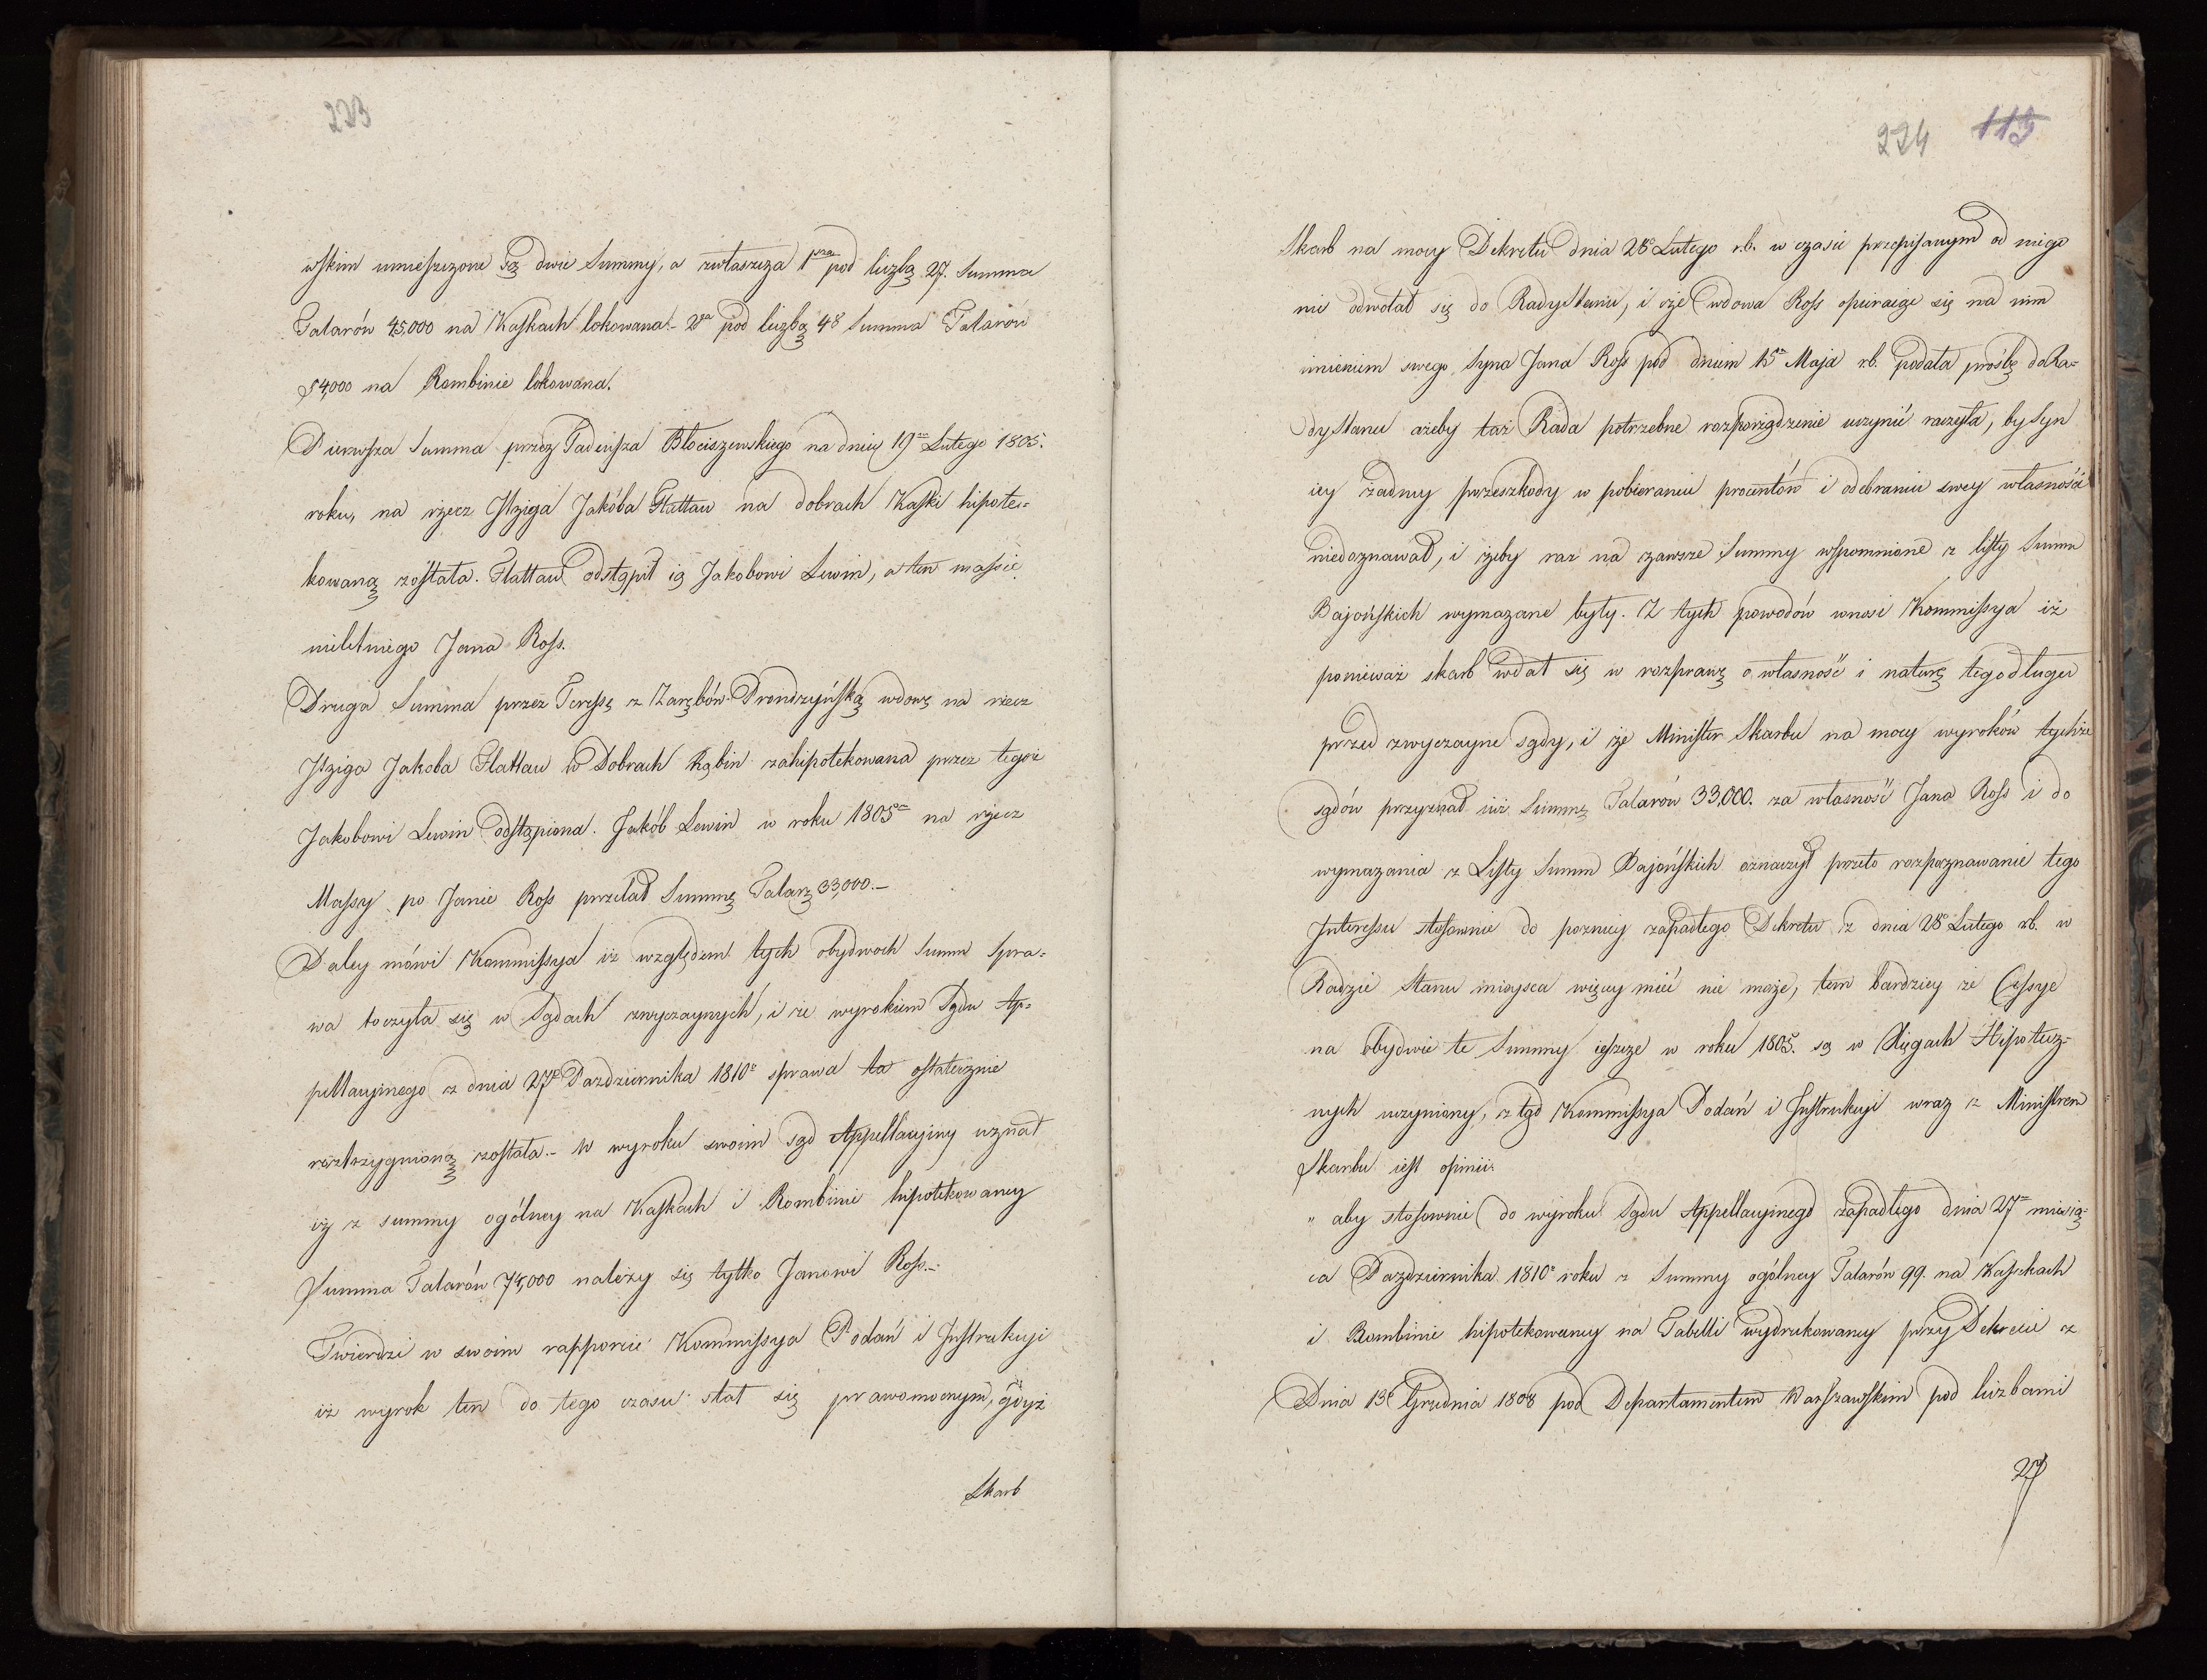 223
wskim umieszczone są dwie Summy, a zwłaszcza 1wsza pod liczbą 27. Summa
Talarów 45,000 na Kaskach lokowana.- 2ga pod liczbą 48 Summa Talarów
54,000 na Rombinie lokowana.
Pierwsza Summa przez Tadeusza Błociszewskiego na dniu 19m Lutego 1805.
roku, na rzecz Itziga Jakóba Flattau na dobrach Kaski hipote=
kowaną została. Flattau odstąpił ią Jakobowi Lewin, a ten massie
nieletniego Jana Ross.
Druga Summa przez Teressę z Zarębów Prondzyńską wdowę na rzecz
Itziga Jakoba Flattau w Dobrach Rąbin zahipotekowana przez tegoż
Jakobowi Lewin odstąpiona. Jakób Lewin w roku 1805m na rzecz
Massy po Janie Ross przelał Summę Talarz 33,000.-
Daley mówi Kommissya iż względem tych obydwoch Summ spra=
wa toczyła się w Sądach zwyczaynych, i że wyrokiem Sądu Ap=
pellacyinego z dnia 27o Pazdziernika 1810o sprawa ta ostatecznie
roztrzygnioną została.- W wyroku swoim sąd Appellacyiny uznał
iż z summy ogólney na Kaskach i Rombinie hipotekowaney
Summa Talarów 74,000 należy się tylko Janowi Ross.-
Twierdzi w swoim rapporcie Kommissya Podań i Instrukcyi
iż wyrok ten do tego czasu stał się prawomocnym, gdyż
Skarb
224 113
Skarb na mocy Dekretu dnia 28o Lutego r.b. w czasie przepisanym od niego
nie odwołał się do Rady Stanu, i że wdowa Ross opieraiąc się na nim
imieniem swego Syna Jana Ross pod dniem 15m Maja r.b. podała prośbę do Ra=
dy Stanu ażeby taż Rada potrzebne rozporządzenie uczynić raczyła, by Syn
iey żadney przeszkody w pobieraniu procentów i odebraniu swey własności
niedoznawał, i żeby raz na zawsze Summy wspomnione z listy Summ
Bajońskich wymazane były. Z tych powodów wnosi Kommissya iż
ponieważ skarb wdał się w rozprawę o własność i naturę tego długu
przed zwyczayne sądy, i że Minister Skarbu na mocy wyroków tychże
sądów przyznał iuż Summę Talarów 33,000. za własność Jana Ross i do
wymazania z Listy Summ Bajońskich oznaczył przeto rozpoznawanie tego
Interessu stosownie do pozniey zapadłego Dekretu z dnia 28o Lutego r.b. w
Radzie Stanu mieysca więcey mieć nie może, tem bardziey że Cessye
na obydwie te Summy ieszcze w roku 1805. są w Xięgach Hipotecz=
nych uczyniony, z tąd Kommissya Podań i Instrukcyi wraz z Ministrem
Skarbu iest opinii:
„ aby stosownie do wyroku Sądu Appellacyinego zapadłego dnia 27m miesią=
ca Pazdziernika 1810o roku z Summy ogólney Talarów 99. na Kaszkach
i Rombinie hipotekowaney na Tabelli wydrukowaney przy Dekrecie z
Dnia 13o Grudnia 1808 pod Departamentem Warszawskim pod liczbami
27